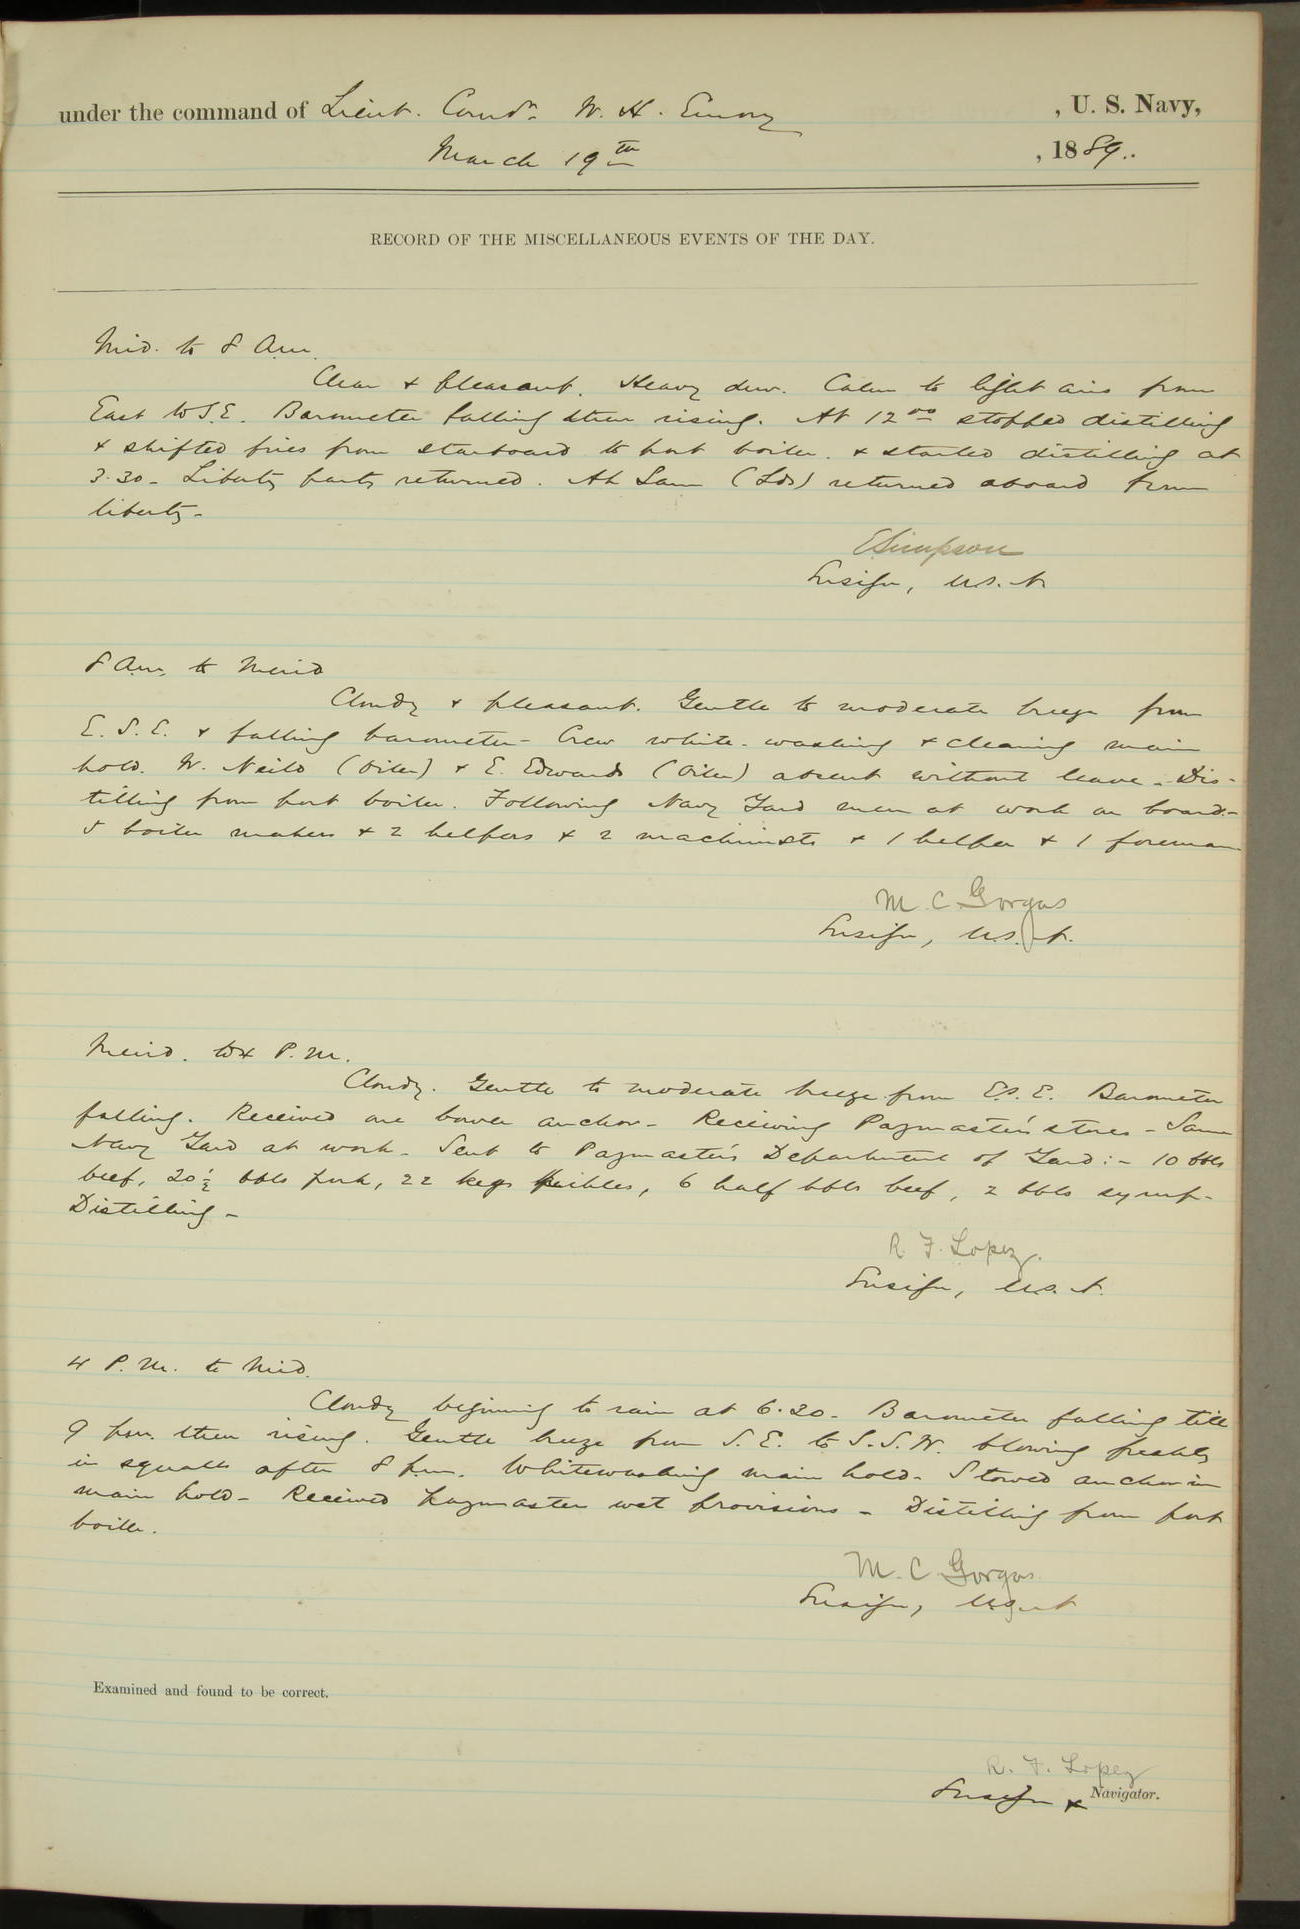 under the command of Lieut. Comdr. W. H. Emory, U. S. Navy,
March 19th, 1889.
RECORD OF THE MISCELLANEOUS EVENTS OF THE DAY.
Mid. to 8 A.m.
Clear & pleasant. Heavy dew. Calm to light airs from
East to S.E. Barometer falling then rising. At 12 00 stopped distilling
& shifted fires from starboard to port boiler. & started distilling at
3.30 - Liberty party returned. Ah Sam (Lds) returned aboard from
liberty -
E Simpson
Ensign, U.S.N.
8 A.m. to Merid
Cloudy & pleasant. Gentle to moderate breeze from
E. S. E. & falling barometer - Crew white-washing & cleaning main
hold. W. Neild (Oiler) & E. Edwards (Oiler) absent without leave - Dis-
tilling from port boiler. Following Navy Yard men at work on board:-
5 boiler makers & 2 helpers & 2 machinists & 1 helper & 1 foreman
M C Gorgas
Ensign, U.S.N.
Merid. to 4 P.M.
Cloudy. Gentle to moderate breeze from ES.E. Barometer
falling. Received one bower anchor - Receiving Paymaster's stores - Same
Navy Yard at work - Sent to Paymaster's Department of Yard:- 10 bbls
beef, 20 1/2 bbls pork, 22 kegs pickles, 6 half bbls beef, 2 bbls syrup -
Distilling -
R. F. Lopez.
Ensign, U.S.N.
4 P.M. to Mid.
Cloudy beginning to rain at 6.20 - Barometer falling till
9 p.m. then rising. Gentle breeze from S. E. to S.S.W. blowing freshly
in squalls after 8 p.m. Whitewashing main hold - Stowed anchor in
main hold - Received paymaster wet provisions - Distilling from port
boiler.
M. C Gorgas
Ensign, U.S.N
Examined and found to be correct.
R. F. Lopez
Ensign & Navigator.